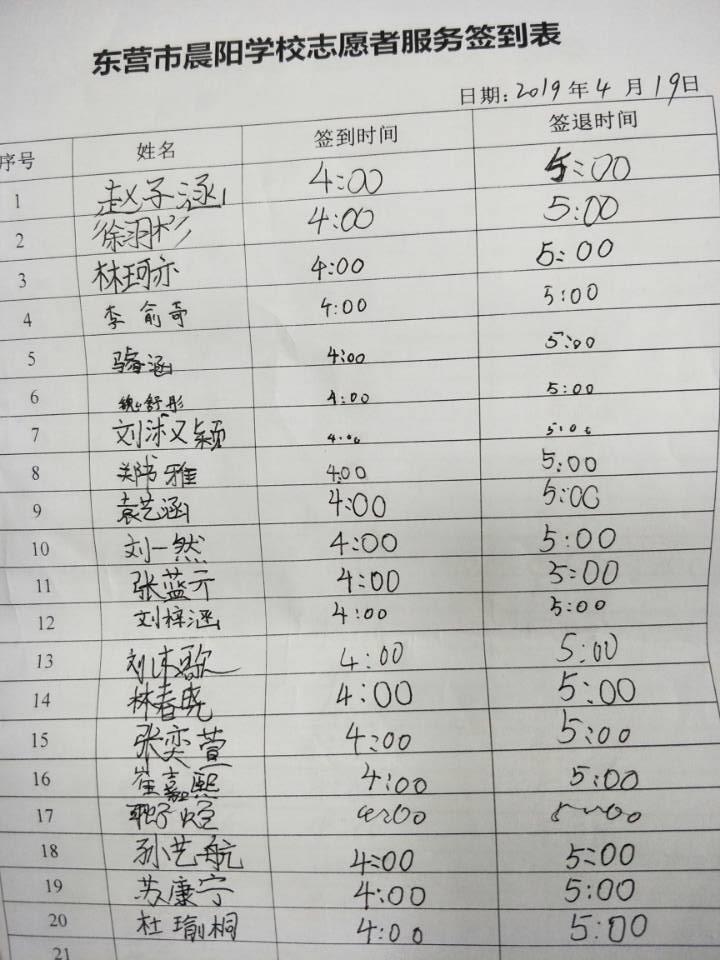 东营市晨阳学校志愿者服务签到表
日期:2019年4月19日
序号 姓名 签到时间 签退时间
1 赵子涵 4:00 5:00
2 徐羽杉 4:00 5:00
3 林珂亦 4:00 5:00
4 李俞奇 4:00 5:00
5 涵 4:00 5:00
6 魏舒彤 4:00 5:00
7 刘沭又颖 4:00 5:00
8 郑书雅 4:00 5:00
9 袁艺涵 4:00 5:00
10 刘一然 4:00 5:00
11 张蓝亓 4:00 5:00
12 刘梓涵 4:00 5:00
13 刘沐歌 4:00 5:00
14 林春晓 4:00 5:00
15 张奕萱 4:00 5:00
16 崔嘉熙 4:00 5:00
17 4~00 5~00
18 孙艺航 4:00 5:00
19 苏康宁 4:00 5:00
20 杜瑜桐 4:00 5:00
21